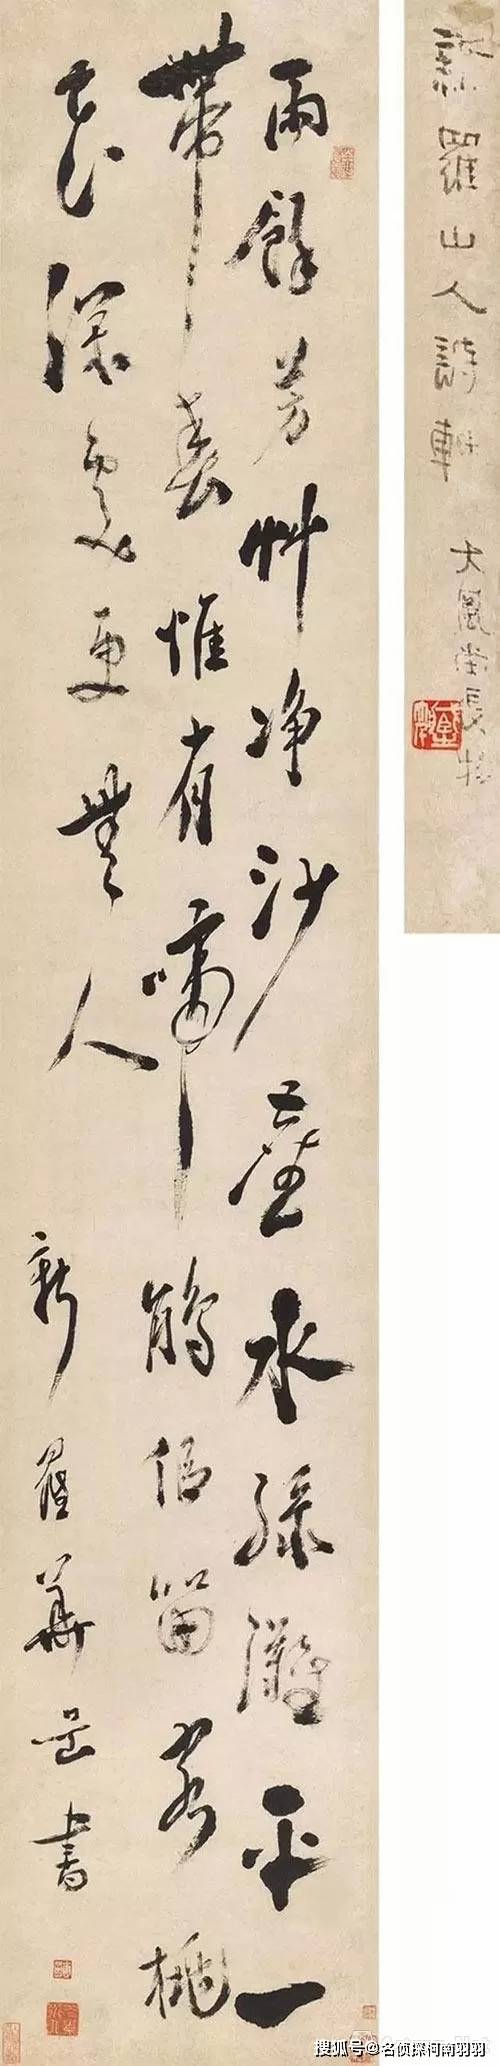 新羅山人詩軸
大風堂長物
雨餘芳艸净沙塵水緑灘平一
帶春惟有啼鵑似留客桃
花深處更無人
新羅華喦書
搜狐号@名侦探柯南羽羽